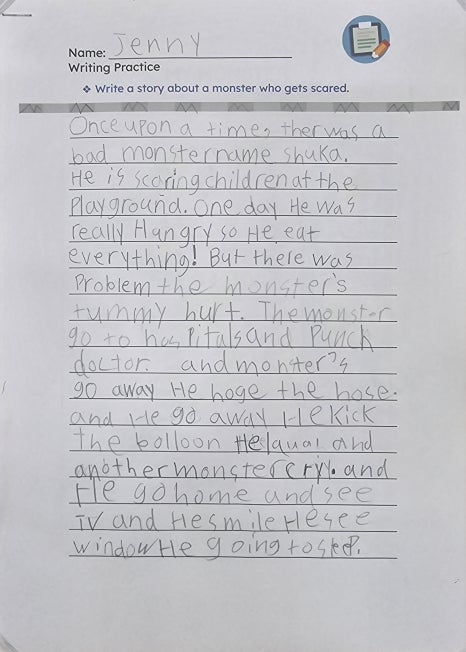 Name: Jenny
Writing Practice
❖ Write a story about a monster who gets scared.
Once upon a time, ther was a
bad monster name shuka.
He is scaring children at the
Playground. One day He was
really Hungry so He eat
everything! But there was
Problem the monster's
tummy hurt. The monster
go to hospitals and Punch
doctor. and monster's
go away He hoge the hose.
and He go away He kick
the balloon He and
another monster cry. and
He go home and see
TV and He smile He see
window He going to